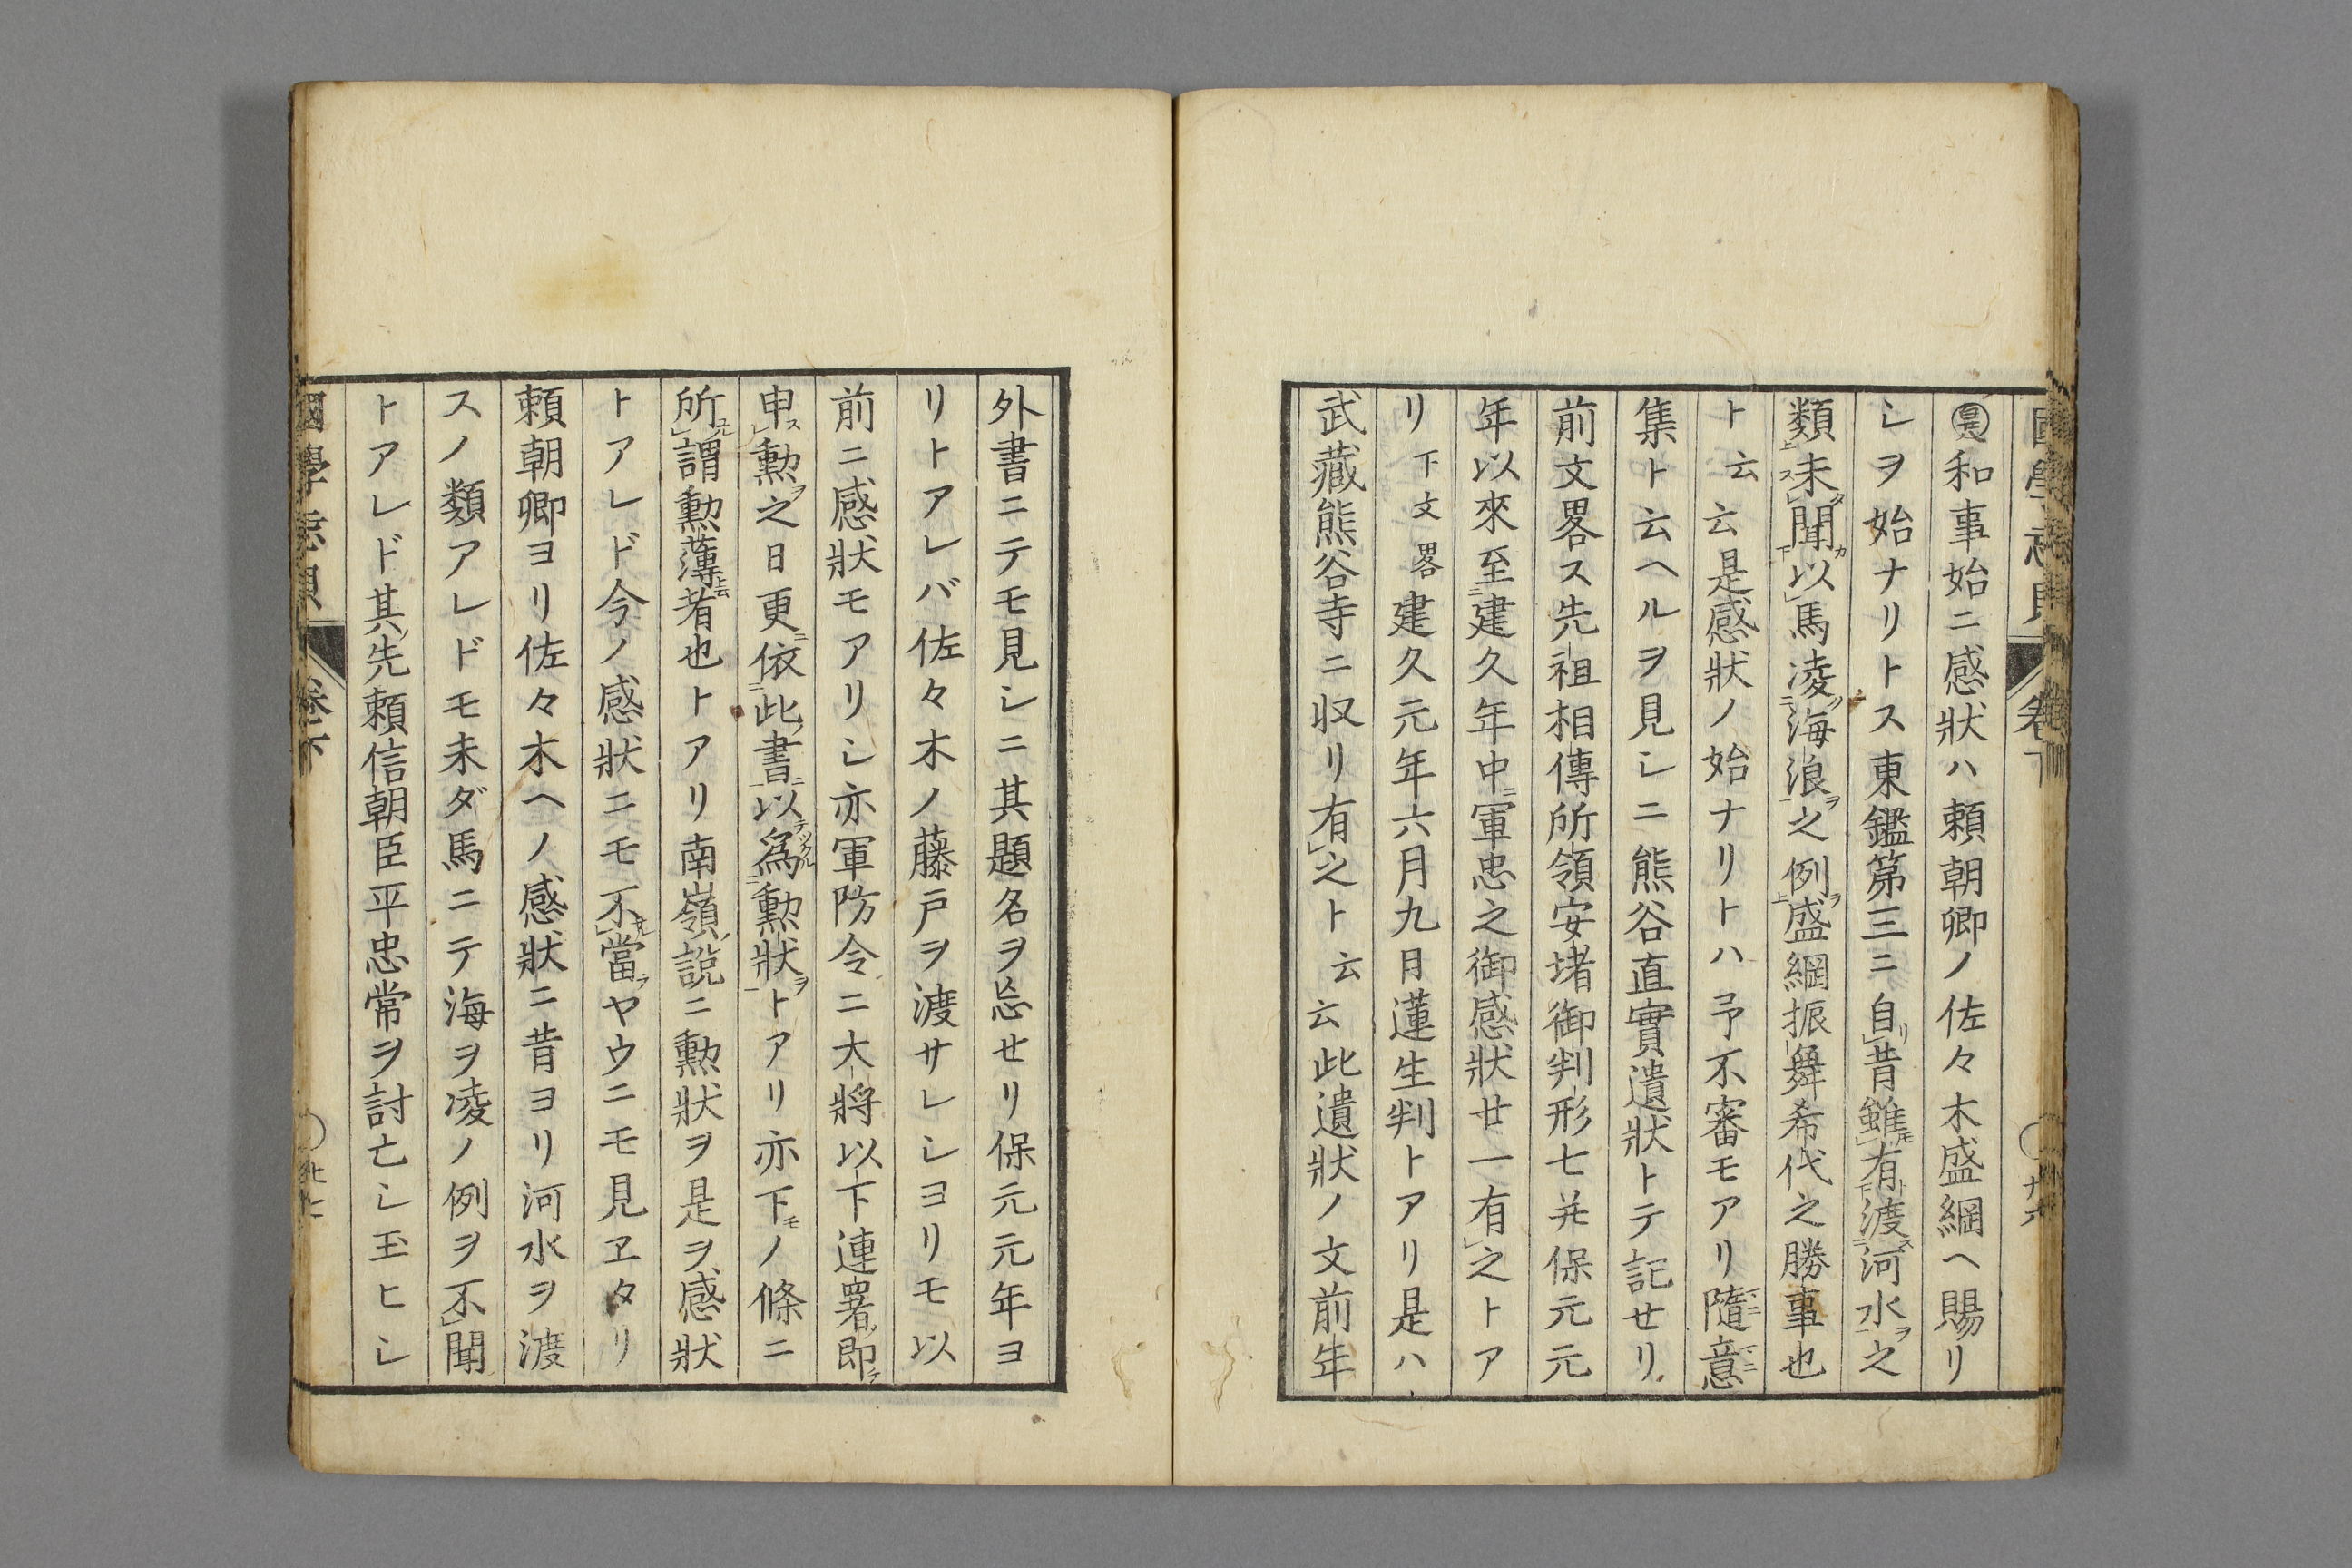 和事始ニ感狀ハ頼朝卿ノ佐々木盛綱ヘ賜リ
シヲ始ナリトス東鑑第三ニ自昔雖有渡河水之
類未聞以馬凌海浪之例盛綱振舞希代之勝事也
ト云云是感狀ノ始ナリトハ予不審モアリ隨意
集ト云ヘルヲ見シニ熊谷直實遺狀トテ記せリ
前文畧ス先祖相傳所領安堵御判形七并保元元
年以來至建久年中軍忠之御感狀廿一有之トア
リ下文畧建久元年六月九日蓮生判トアリ是ハ
武藏熊谷寺ニ収リ有之ト云云此遺狀ノ文前年
外書ニテモ見シニ其題名ヲ忘せリ保元元年ヨ
リトアレバ佐々木ノ藤戸ヲ渡サレシヨリモ以
前ニ感狀モアリシ亦軍防令ニ大將以下連署即
申勲之日更依此書以爲勲狀トアリ亦下ノ條ニ
所謂勲薄者也トアリ南嶺說ニ勲狀ヲ是ヲ感狀
トアレド今ノ感狀ニモ不當ヤウニモ見ヱタリ
頼朝卿ヨリ佐々木ヘノ感狀ニ昔ヨリ河水ヲ渡
スノ類アレドモ未ダ馬ニテ海ヲ凌ノ例ヲ不聞
トアレド其先頼信朝臣平忠常ヲ討亡シ玉ヒシ
卷下